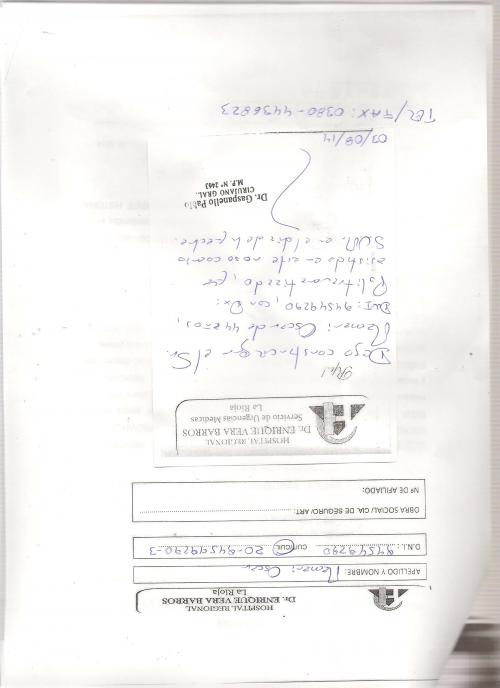 HOSPITAL REGIONAL
Dr. ENRIQUE VERA BARROS
La Rioja
APELLIDO Y NOMBRE: Oscar
D.N.I.: 94549290 CUIT/CUIL 20-94549290-3
OBRA SOCIAL/ CIA. DE SEGURO/ ART:
Nº DE AFILIADO:
HOSPITAL REGIONAL
Dr. ENRIQUE VERA BARROS
Servicio de Urgencias Medicas
La Rioja
Dejo constancia que el Sr.
Oscar de 44 años,
DNI: 94549290, con Dx:
Politraumatizado, fue
asistido en este nosocomio
SUM. en el día de la fecha.
Dr. Gaspanello Pablo
CIRUJANO GRAL.
M.P. Nº 2463
03/09/14
TEL/FAX: 0380-4436823